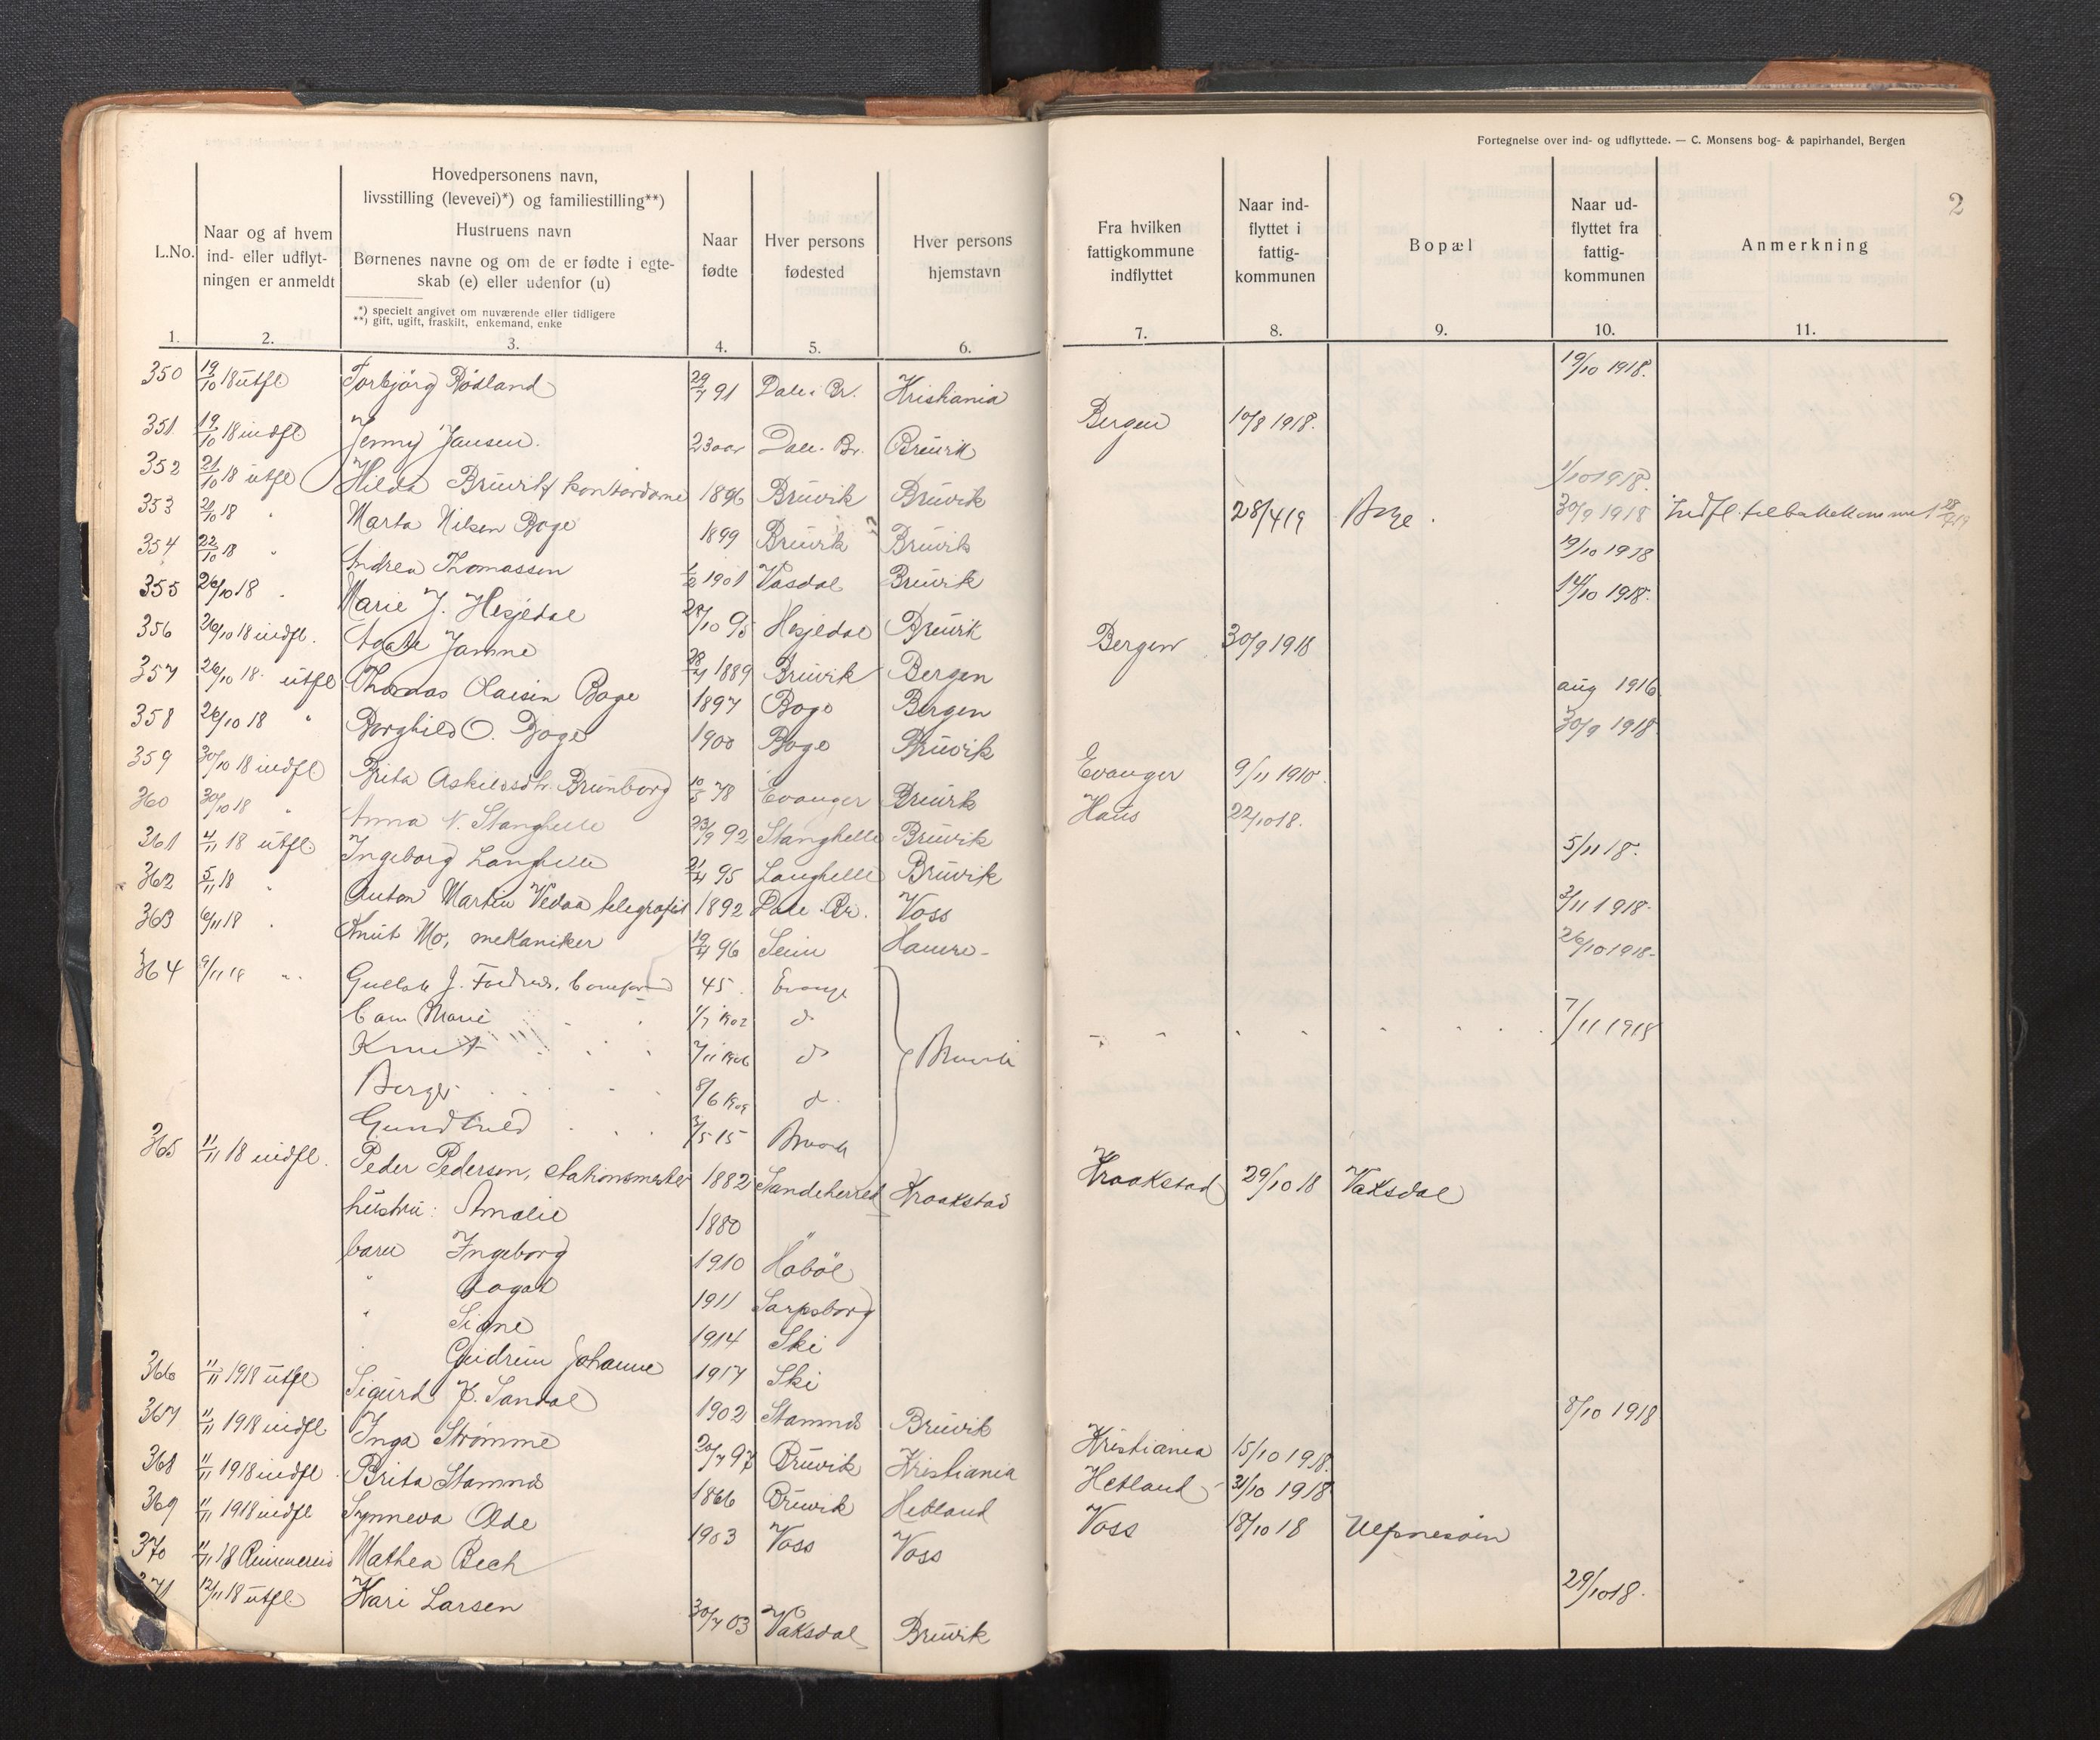 Fortegnelse over ind- og udflyttede. — C. Monsens bog- & papirhandel, Bergen
2
L.No.
Naar og af hvem ind- eller udflyt-ningen er anmeldt
Hovedpersonens navn,
livsstilling (levevei)*) og familiestilling**)
Hustruens navn
Børnenes navne og om de er fødte i egte-
skab (e) eller udenfor (u)
*) specielt angivet om nuværende eller tidligere
**) gift, ugift, fraskilt, enkemand, enke
Naar fødte
Hver persons fødested
Hver persons hjemstavn
Fra hvilken fattigkommune indflyttet
Naar ind-flyttet i fattig-kommunen
Bopæl
Naar ud-flyttet fra fattig-kommunen
Anmerkning
1. 2. 3. 4. 5. 6. 7. 8. 9. 10. 11.
350 19/10 18 utfl Torbjörg Rödland 29/7 91 Dale. Br. Kristiania 19/10 1918.
351 19/10 18 indfl Jenny Jansen. 23 aar Dale. Br. Bruvik Bergen 10/8 1918.
352 21/10 18 utfl Hilda Bruvik, kontordame 1896 Bruvik Bruvik 1/10 1918.
353 21/10 18 " Marta Nilsen Boge 1899 Bruvik Bruvik 28/4 19 Boge. 30/9 1918 Indfl. tilbakekommet 28/4 19
354 22/10 18 " Andrea Thomassen 1901 Vasdal Bruvik 19/10 1918
355 26/10 18 " Marie J. Hesjedal 95 Hesjedal Bruvik 14/10 1918.
356 26/10 18 indfl. Agate Jamne 1889 Bruvik Bergen Bergen 30/9 1918
357 26/10 18 utfl Thomas Olaisen Boge 1897 Boge Bergen aug 1916
358 26/10 18 " Borghild O. Boge 1900 Boge Bruvik 30/9 1918
359 30/10 18 indfl Brita Askildsdtr. Brunborg 10/5 78 Evanger Bruvik Evanger 9/11 1910.
360 30/10 18 " Anna N. Stanghelle 23/9 92 Stanghelle Bruvik Haus 22/10 18.
361 4/11 18 utfl. Ingeborg Langhelle 95 Langhelle Bruvik 5/11 18.
362 5/11 18 " Anton Martin Vedaa telegrafist 1892 Dale. Br. Voss 3/11 1918.
363 6/11 18 " Knut Mo, mekaniker 19/4 96 Seim Hamre 26/10 1918
364 9/11 18 " Gullak J. 45 Evanger 7/11 1918
Barn Marie 1/7 1902 do
Knut 7/11 1906 do
Borger 8/6 1909 do
Gundhild 3/5 15 Bruvik
Bruvik
365 11/11 18 indfl. Peder Pedersen, stationsmester 1882 Sandeherred Kraakstad Kraakstad 29/10 18 Vaksdal
hustru: Amalie 1880 "
barn Ingeborg 1910 Höböl
" Aagat 1911 Sarpsborg
" Signe 1914 Ski
" Gudrun Johanne 1917 Ski
366 11/11 1918 utfl Sigurd J. Sandal 1902 Stamnes Bruvik 8/10 1918
367 11/11 1918 indfl Inga Strömme 20/7 97 Bruvik Kristiania Kristiania 15/10 1918.
368 11/11 1918 indfl Brita Stamnes 1866 Bruvik Hetland Hetland 31/10 1918
369 11/11 1918 indfl Synneva Ode 1903 Voss Voss Voss 18/10 18
370 11/11 18 Mathea Bech
371 12/11 18 utfl. Kari Larsen 30/7 03 Vaksdal Bruvik 29/10 18.